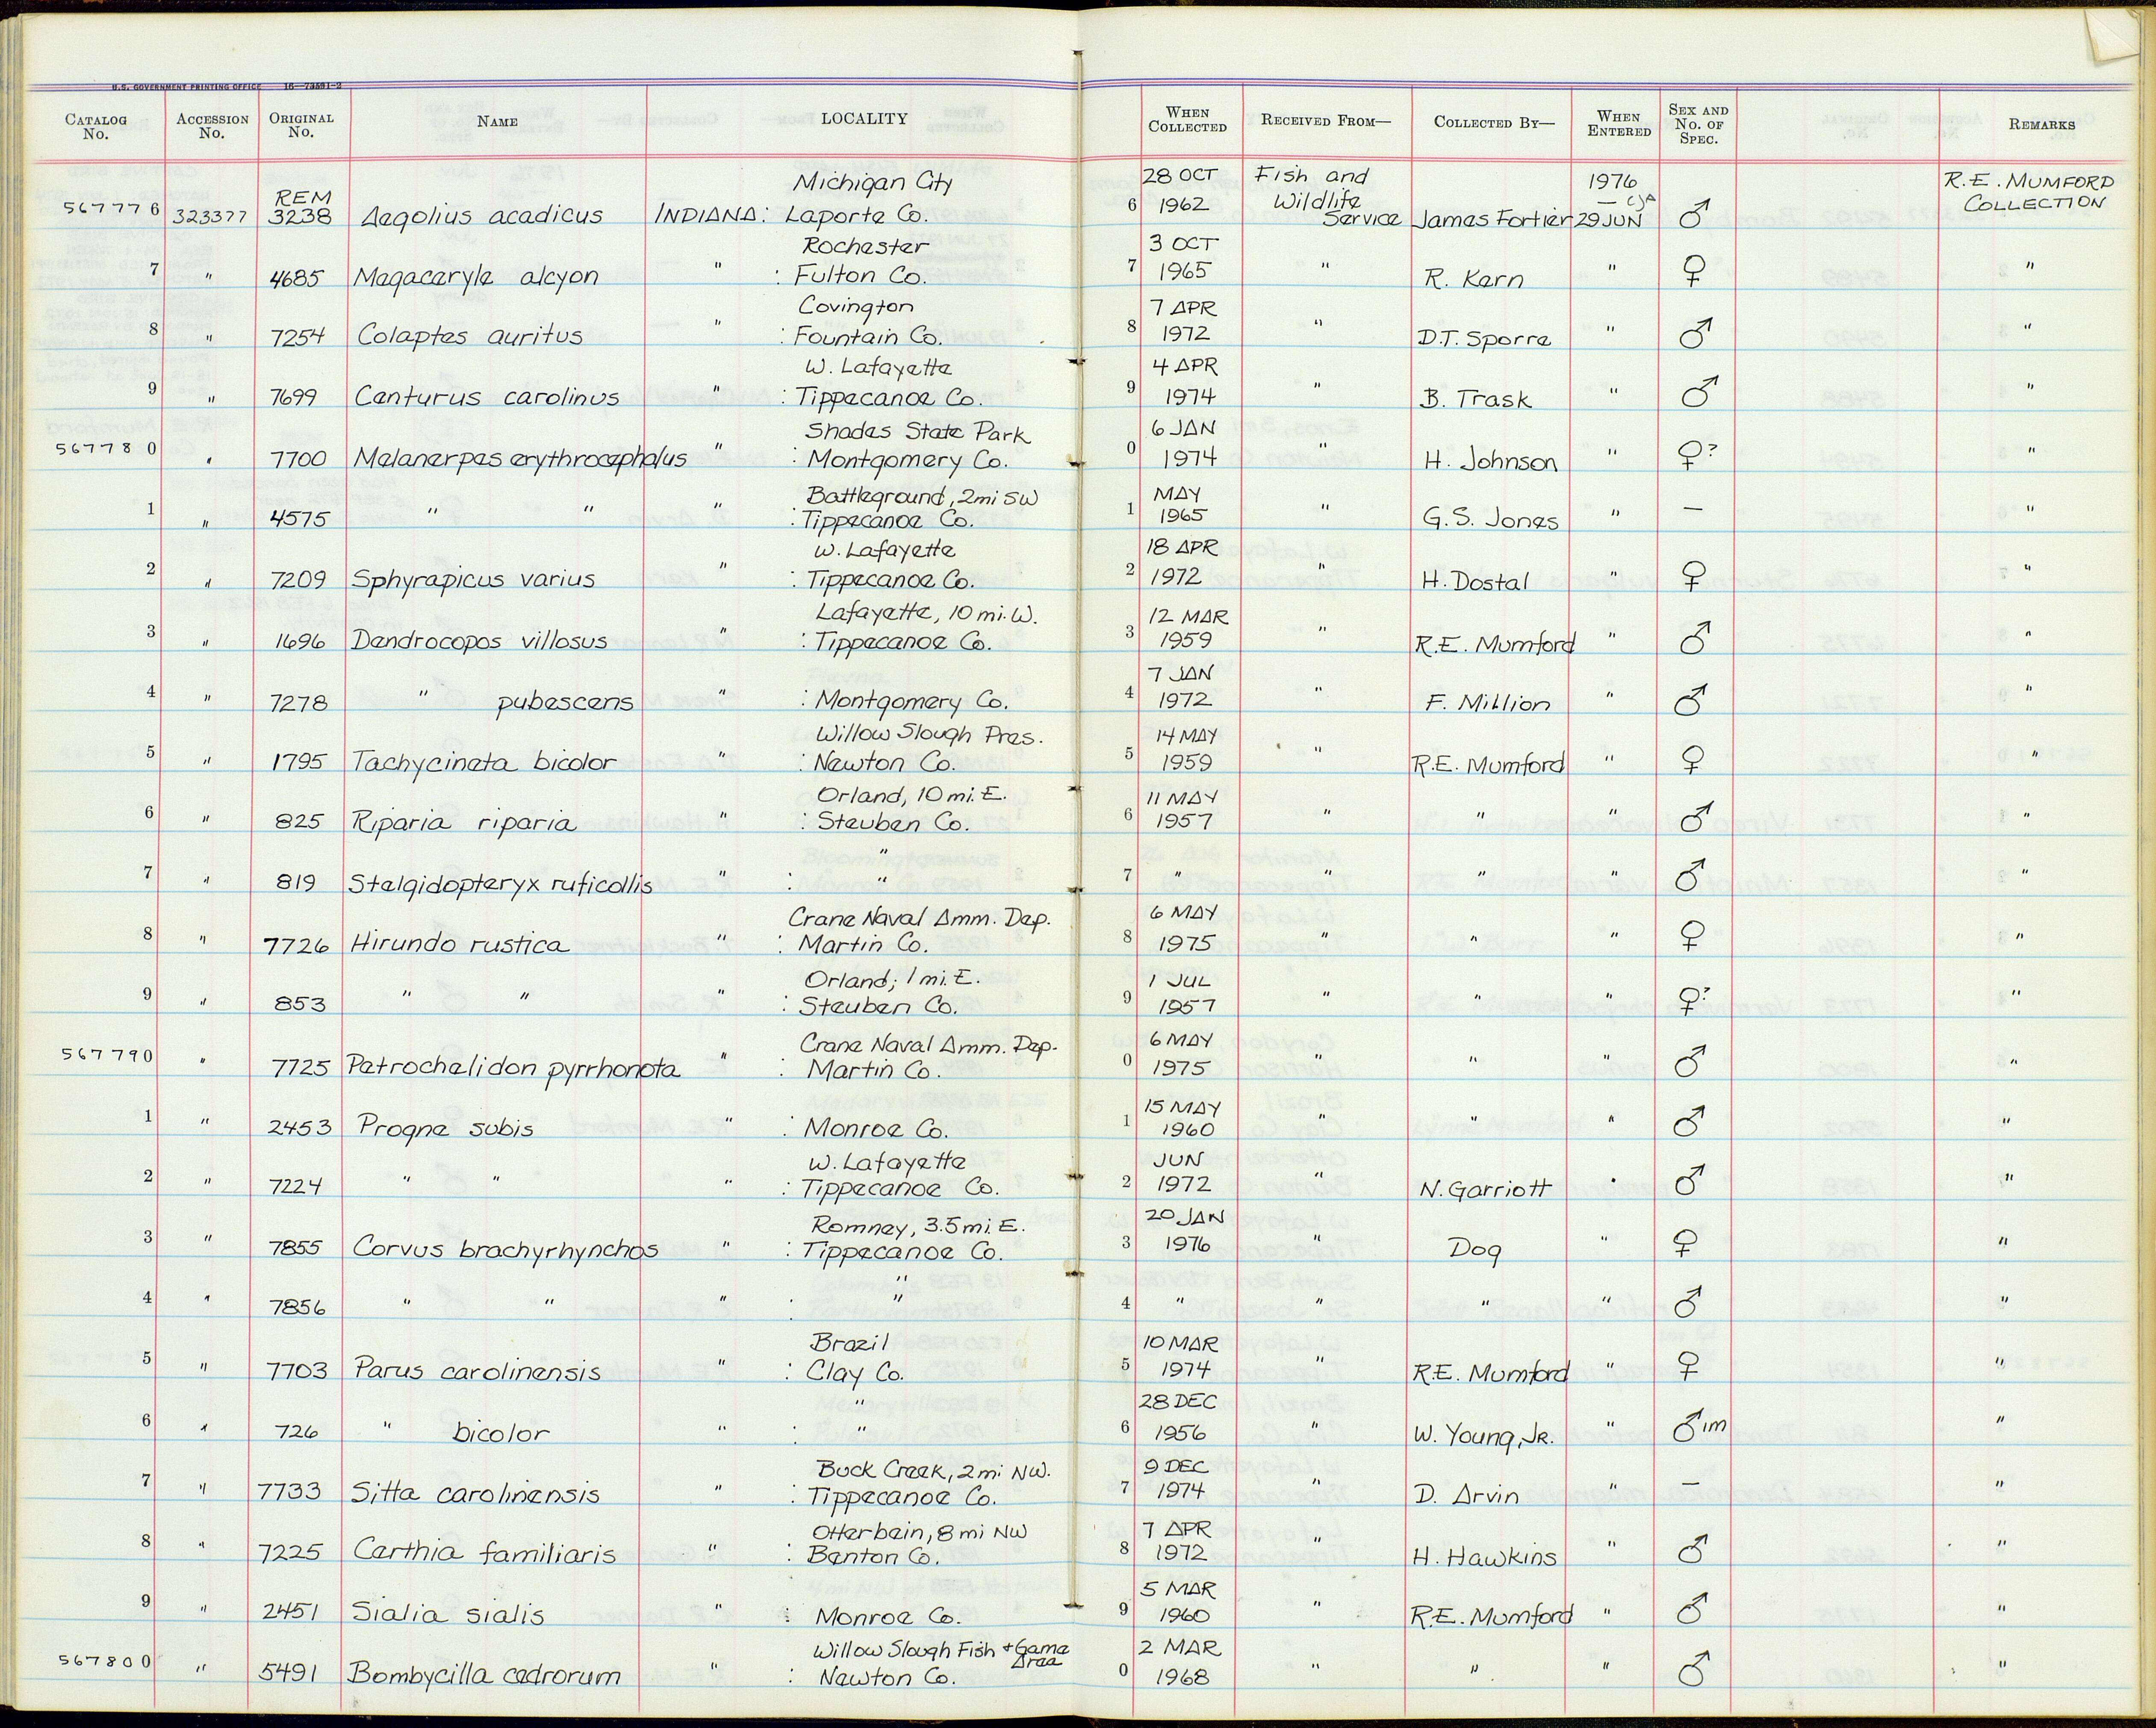 U.S. GOVERNMENT PRINTING OFFICE 16—73591-2
CATALOG No. ACCESSION No. ORIGINAL No. NAME LOCALITY WHEN COLLECTED RECEIVED FROM— COLLECTED BY— WHEN ENTERED SEX AND No. OF SPEC. REMARKS
Michigan City 28 OCT Fish and 1976 R.E. MUMFORD
REM Wildlife COLLECTION
567776 323377 3238 Aegolius acadicus INDIANA: Laporte Co. 6 1962 Service James Fortier 29 JUN ♂
Rochester 3 OCT
7 " 4685 Megaceryle alcyon " : Fulton Co. 7 1965 " R. Karn " ♀ "
Covington 7 APR
8 " 7254 Colaptes auritus " : Fountain Co. 8 1972 " D.T. Sporre " ♂ "
W. Lafayette 4 APR
9 " 7699 Centurus carolinus " : Tippecanoe Co. 9 1974 " B. Trask " ♂ "
Shades State Park 6 JAN
567780 " 7700 Melanerpes erythrocephalus " : Montgomery Co. 0 1974 " H. Johnson " ♀? "
Battleground, 2mi SW MAY
1 " 4575 " " " : Tippecanoe Co. 1 1965 " G.S. Jones " — "
W. Lafayette 18 APR
2 " 7209 Sphyrapicus varius " : Tippecanoe Co. 2 1972 " H. Dostal " ♀ "
Lafayette, 10 mi. W. 12 MAR
3 " 1696 Dendrocopos villosus " : Tippecanoe Co. 3 1959 " R.E. Mumford " ♂ "
7 JAN
4 " 7278 " pubescens " : Montgomery Co. 4 1972 " F. Million " ♂ "
Willow Slough Pres. 14 MAY
5 " 1795 Tachycineta bicolor " : Newton Co. 5 1959 " R.E. Mumford " ♀ "
Orland, 10 mi. E. 11 MAY
6 " 825 Riparia riparia " : Steuben Co. 6 1957 " " " ♂ "
"
7 " 819 Stelgidopteryx ruficollis " : " 7 " " " " ♂ "
Crane Naval Amm. Dep. 6 MAY
8 " 7726 Hirundo rustica " : Martin Co. 8 1975 " " " ♀ "
Orland; 1 mi. E. 1 JUL
9 " 853 " " " : Steuben Co. 9 1957 " " " ♀? "
Crane Naval Amm. Dep. 6 MAY
567790 " 7725 Petrochelidon pyrrhonota " : Martin Co. 0 1975 " " " ♂ "
15 MAY
1 " 2453 Progne subis " : Monroe Co. 1 1960 " " " ♂ "
W. Lafayette JUN
2 " 7224 " " " : Tippecanoe Co. 2 1972 " N. Garriott " ♂ "
Romney, 3.5 mi. E. 20 JAN
3 " 7855 Corvus brachyrhynchos " : Tippecanoe Co. 3 1976 " Dog " ♀ "
"
4 " 7856 " " : " 4 " " " " ♂ "
Brazil 10 MAR
5 " 7703 Parus carolinensis " : Clay Co. 5 1974 " R.E. Mumford " ♀ "
" 28 DEC
6 " 726 " bicolor " : " 6 1956 " W. Young, Jr. " ♂ im "
Buck Creek, 2mi NW. 9 DEC
7 " 7733 Sitta carolinensis " : Tippecanoe Co. 7 1974 " D. Arvin " — "
Otterbein, 8 mi NW 7 APR
8 " 7225 Certhia familiaris " : Benton Co. 8 1972 " H. Hawkins " ♂ "
5 MAR
9 " 2451 Sialia sialis " : Monroe Co. 9 1960 " R.E. Mumford " ♂ "
Willow Slough Fish + Game Area 2 MAR
567800 " 5491 Bombycilla cedrorum " : Newton Co. 0 1968 " " " ♂ "